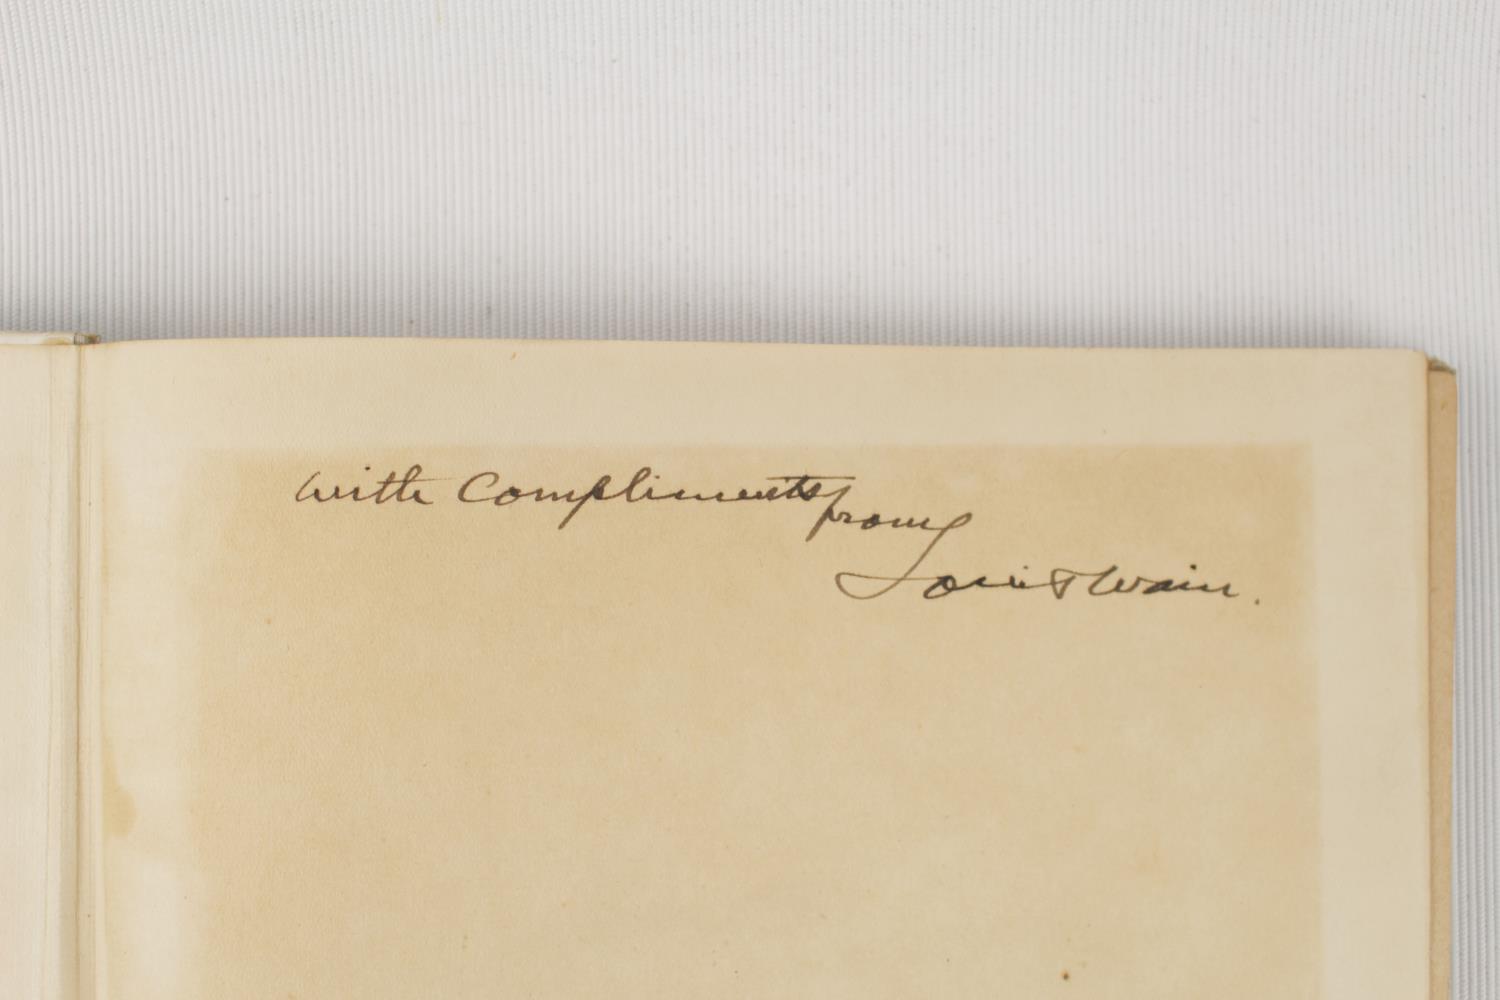 with Compliments
from
Louis Wain.